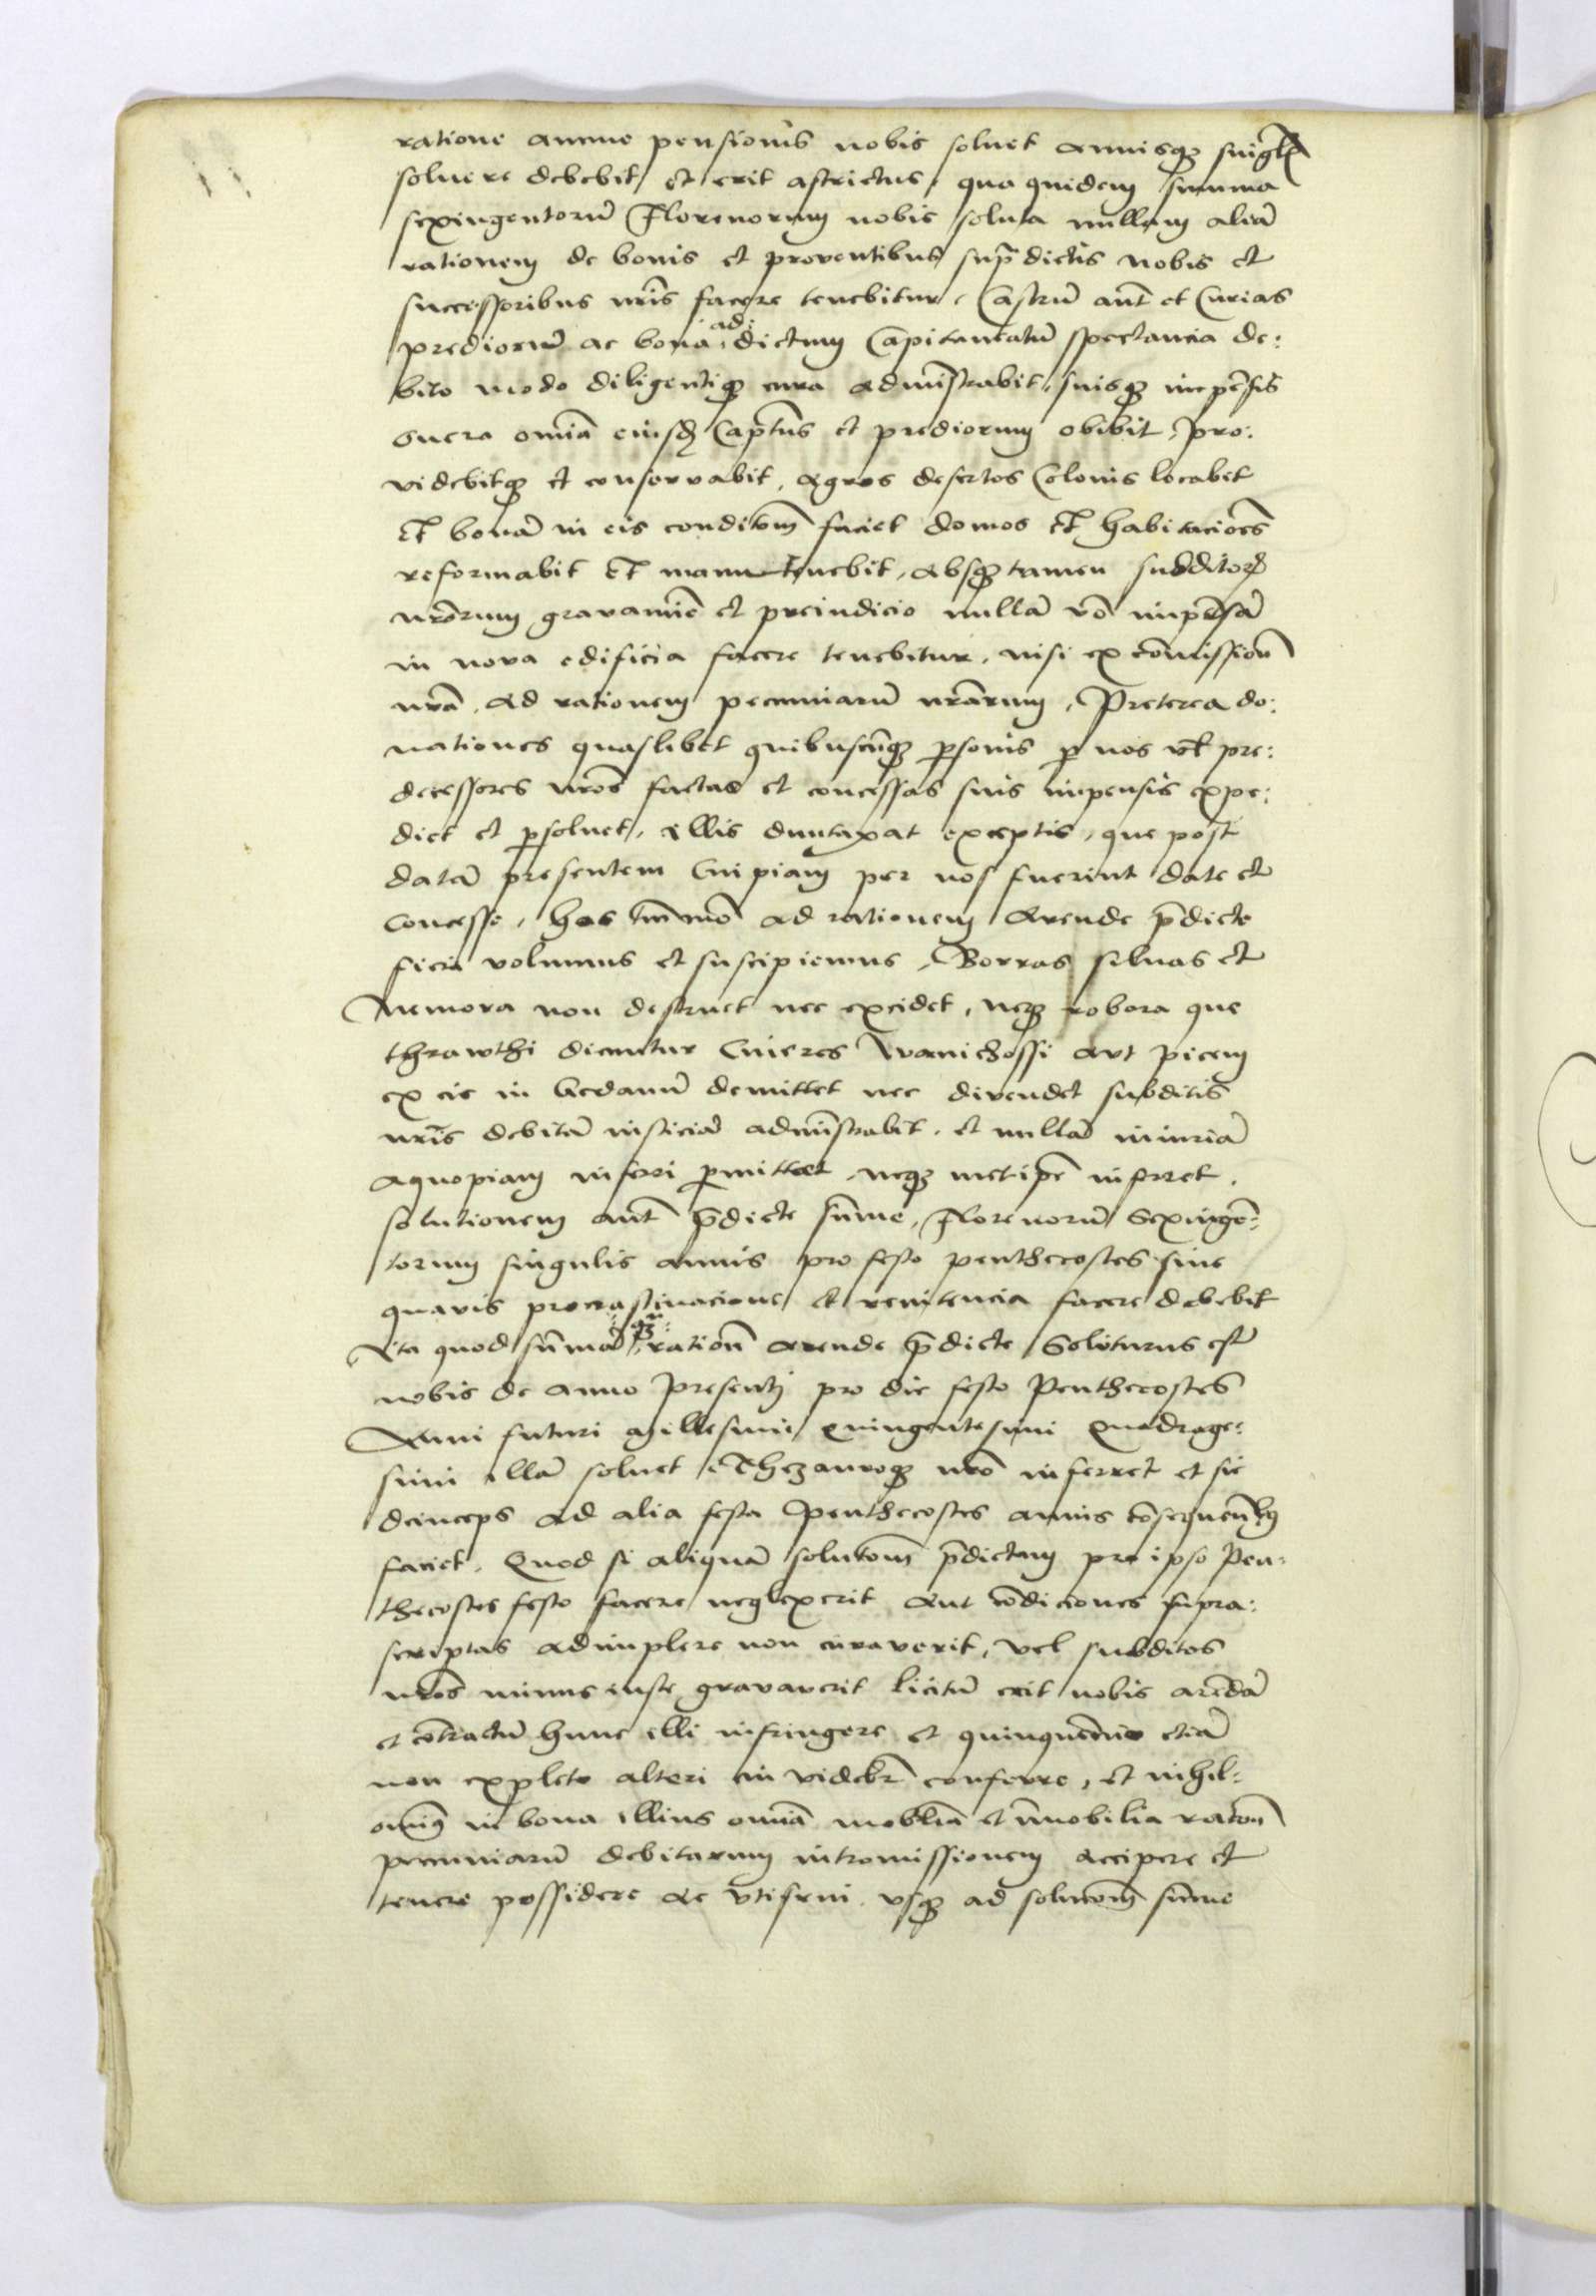 ratione annue pensionis nobis solvet annisq̨ singľs
solvere debebit, et erit astrictus, qua quidem summa
sexingentorū Florenorum nobis soluta nullam aliā
rationem de bonis et proventibus suprā dictis nobis et
successoribus nr̃is facere tenebitur, Castrū aūt et Curias
prediorū ac bona ad dictum Capitaneatū spectancia de:
bito modo diligentiq̨ cura admīstrabit, suisq̨ impēsis
onera omīa eiusd̨ Captūs et prediorum obibit, pro:
videbitq̨ et conservabit, Agros desertos Colonis locabet
Et bonā in eis conditōm faciet domos Et habitacioēs
reformabit Et manutenebit, absq̨ tamen subditor̨
nr̃orum gravamīe et preiudicio nullā vō impēsā
in nova edificia facere tenebitur, nisi ex cōmissionē
nr̃ā, ad rationem pecuniarū nr̃arum, Preterea do:
nationes quaslibet quibuscūq̨ p̱sonis p̱ nos vel pre:
decessores nr̃os factas et concessas suis impensis expe:
diet et p̱solvet, illis duntaxat exceptis, que post
datā presentem Cuipiam per nos fuerint date et
Concesse, has tm̄mō ad rationem Arende p̄dicte
ficri volumus et suscipiemus, Borras silvas et
Nemora non destruet nec excidet, neq̨ robora que
thrawthi dicuntur Cineres Wanichossi aut picem
ex eis in Gedanū demittet nec divendet subditis
nr̃is debitā iusticiā admīstrabit, et nullā iniuriā
aquopiam inferi p̱mittet, neq̨ metip̄e inferret,
solutionem aūt p̄dicte sūme, Florenorū Sexingē:
torum singulis annis pro festo penthecostes sine
quavis procrastinacione et renitencia facere debebit
Ita quod sūmā ration̄ arende p̄dicte Soluturus est
nobis de anno presenti pro die festo Penthecostes
Anni futuri Millesimi Quingentesimi Quadrage:
simi illā solvet Thezauroq̨ nr̃o inferret et sic
deinceps ad alia festa Penthecostes annis cōsequentib9
faciet, Quod si aliquā solutōm p̄dictam pro ipso Pen:
thecostes festo facere neglexerit aut cōdiciones supra:
scriptas adimplere non curaverit, vel subditos
nr̃os minus iuste gravaverit licitū erit nobis arēdā
et cōtractū hunc illi infringere et quinquēnio etiā
non expleto alteri cui videbr̄ conferre, et nihil:
omin9 in bona illius omīa mobľia et īmobilia ratōn
pecuniarū debitarum intromissionem accipere et
tenere possidere ac utifrui usq̨ ad solutōm sūme